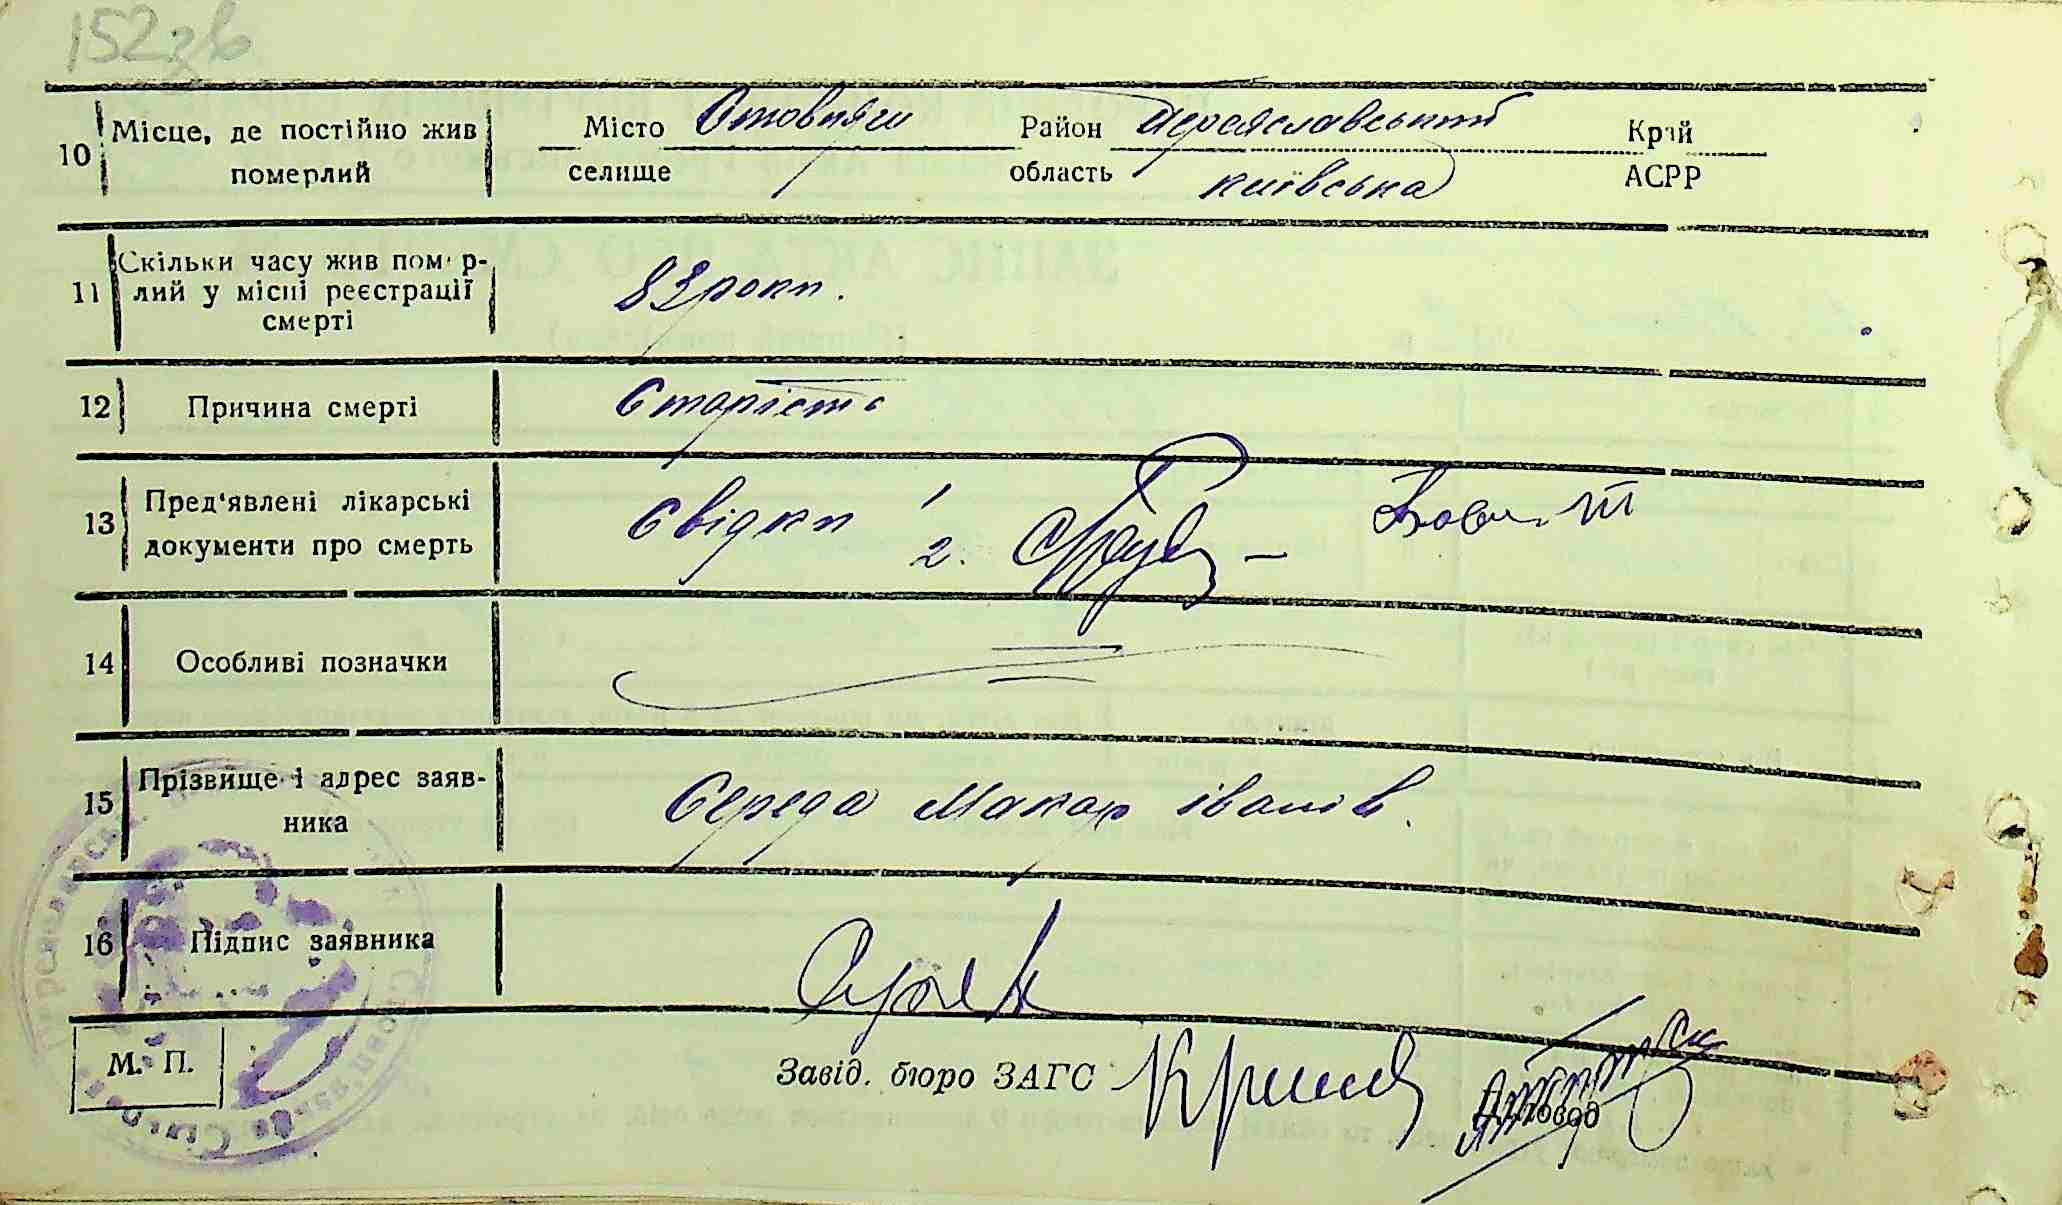 152 зв
10 Місце, де постійно жив померлий
Місто Стовпяги Район Переяславський Край
селище область київська АСРР
11 Скільки часу жив помер-
лий у місці реєстрації
смерті
83 роки.
12 Причина смерті Старість
13 Пред'явлені лікарські
документи про смерть
Свідки 1
2.
14 Особливі позначки
15 Прізвище і адрес заяв-
ника
Середа Макар іванів.
16 Підпис заявника
М. П.
Завід. бюро ЗАГС
Діловод